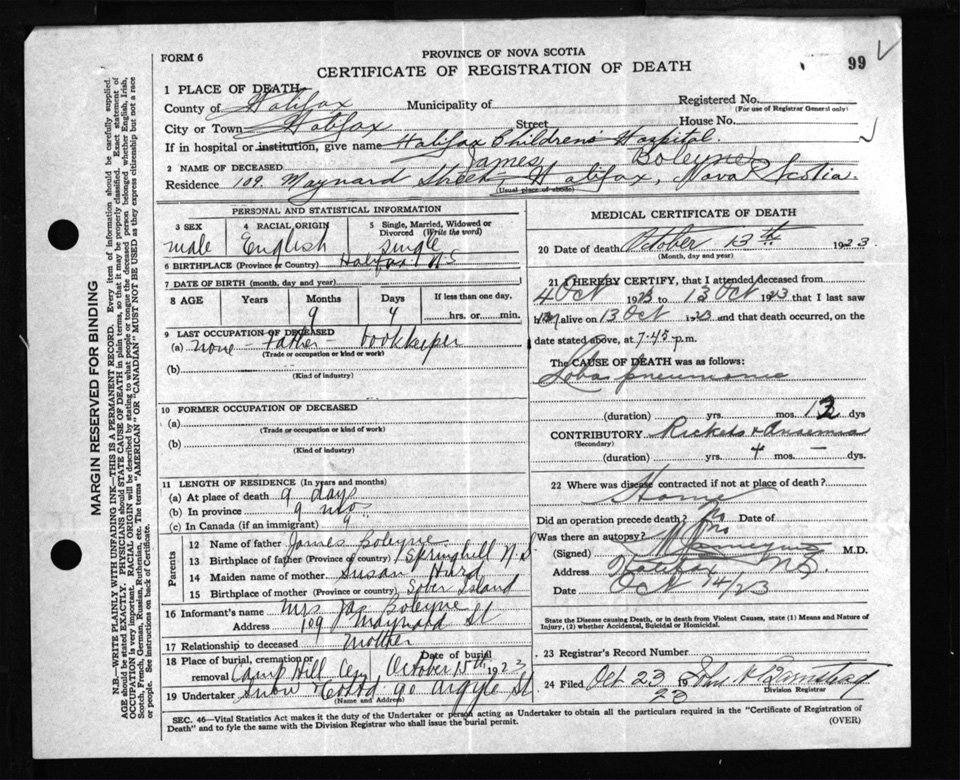 FORM 6
PROVINCE OF NOVA SCOTIA
CERTIFICATE OF REGISTRATION OF DEATH
99
1 PLACE OF DEATH
County of Halifax Municipality of
Registered No.
(For use of Registrar General only)
City or Town Halifax Street House No.
If in hospital or institution, give name Halifax Childrens Hospital
2 NAME OF DECEASED James Boleyne
Residence 109 Maynard Street Halifax, Nova Scotia
(Usual place of abode)
PERSONAL AND STATISTICAL INFORMATION
3 SEX
male
4 RACIAL ORIGIN
English
5 Single, Married, Widowed or Divorced (Write the word)
single
6 BIRTHPLACE (Province or Country) Halifax N S
7 DATE OF BIRTH (month, day and year)
8 AGE Years Months Days If less than one day,
9
hrs. or min.
9 LAST OCCUPATION OF DECEASED
(a) none - Father - bookkeeper
(Trade or occupation or kind or work)
(b)
(Kind of industry)
10 FORMER OCCUPATION OF DECEASED
(a)
(Trade or occupation or kind or work)
(b)
(Kind of industry)
11 LENGTH OF RESIDENCE (In years and months)
(a) At place of death 9 days
(b) In province 9 mos
(c) In Canada (if an immigrant)
Parents
12 Name of father James Boleyne
13 Birthplace of father (Province or Country) Springhill N S
14 Maiden name of mother Susan Hurd
15 Birthplace of mother (Province or country) Island
16 Informant's name Mrs Jas Boleyne
Address 109 Maynard St
17 Relationship to deceased mother
18 Place of burial, cremation or removal Camp Hill Cey
Date of burial October 15th, 1923
19 Undertaker Snow & Co Ltd 90 Argyle St
(Name and Address)
MEDICAL CERTIFICATE OF DEATH
20 Date of death October 13th 1923.
(Month, day and year)
21 I HEREBY CERTIFY, that I attended deceased from
4 Oct 1923 to 13 Oct 1923 that I last saw
him alive on 13 Oct 1923 and that death occurred, on
date stated above, at 7-45 p.m.
The CAUSE OF DEATH was as follows:
Lobar pneumonia
(duration) yrs. mos. 12 dys
CONTRIBUTORY Rickets & Anaemia
(Secondary)
(duration) yrs. 4 mos. - dys.
22 Where was disease contracted if not at place of death?
Home
Did an operation precede death? No Date of
Was there an autopsy? no
(Signed) M.D.
Address Halifax N.S.
Date Oct 14/23
State the Disease causing Death, or in death from Violent Causes, state (1) Means and Nature of Injury, (2) whether Accidental, Suicidal or Homicidal.
23 Registrar's Record Number
24 Filed Oct 23 1923 John
Division Registrar
SEC. 46—Vital Statistics Act makes it the duty of the Undertaker or person acting as Undertaker to obtain all the particulars required in the "Certificate of Registration of
Death" and to fyle the same with the Division Registrar who shall issue the burial permit.
(OVER)
MARGIN RESERVED FOR BINDING
N.B.—WRITE PLAINLY WITH UNFADING INK—THIS IS A PERMANENT RECORD. Every item of information should be carefully supplied.
AGE should be stated EXACTLY. PHYSICIANS should STATE CAUSE OF DEATH in plain terms, so that it may be properly classified. Exact statement of
OCCUPATION is very important. RACIAL ORIGIN will be described by stating to what people or tongue the deceased person belonged whether English, Irish,
Scotch, French, German, Russian, Ruthenian, etc. The terms "AMERICAN" OR "CANADIAN" MUST NOT BE USED as they express citizenship but not a race
or people. See instructions on back of Certificate.